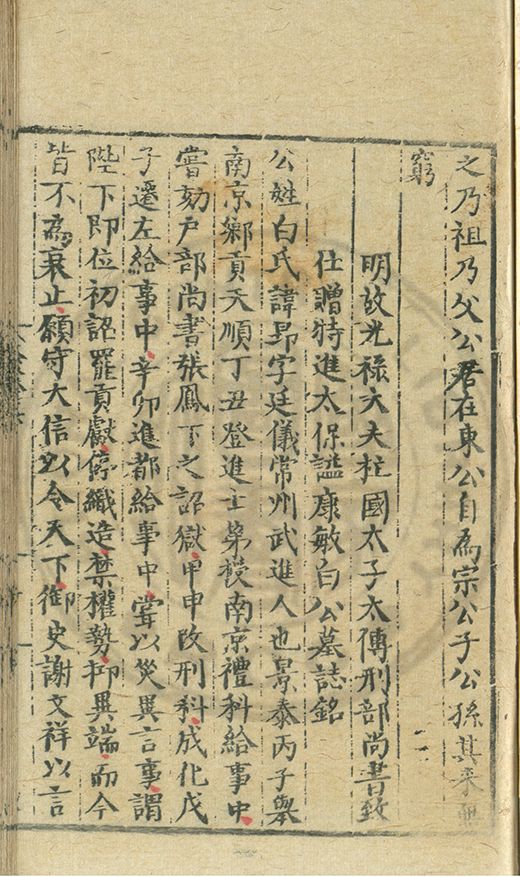 之乃祖乃父公君在東公自為宗公子公孫其來無
窮
明故光祿大夫柱國太子太傅刑部尚書致
仕贈特進太保諡康敏白公墓誌銘
公姓白氏諱昂字廷儀常州武進人也景泰丙子舉
南京鄉貢天順丁丑登進士第授南京禮科給事中
嘗劾戶部尚書張鳳下之詔獄甲申改刑科成化戊
子遷左給事中辛卯進都給事中嘗以災異言事謂
陛下即位初詔罷貢獻停織造禁權勢抑異端而今
皆不為衰止願守大信以令天下御史謝文祥以言